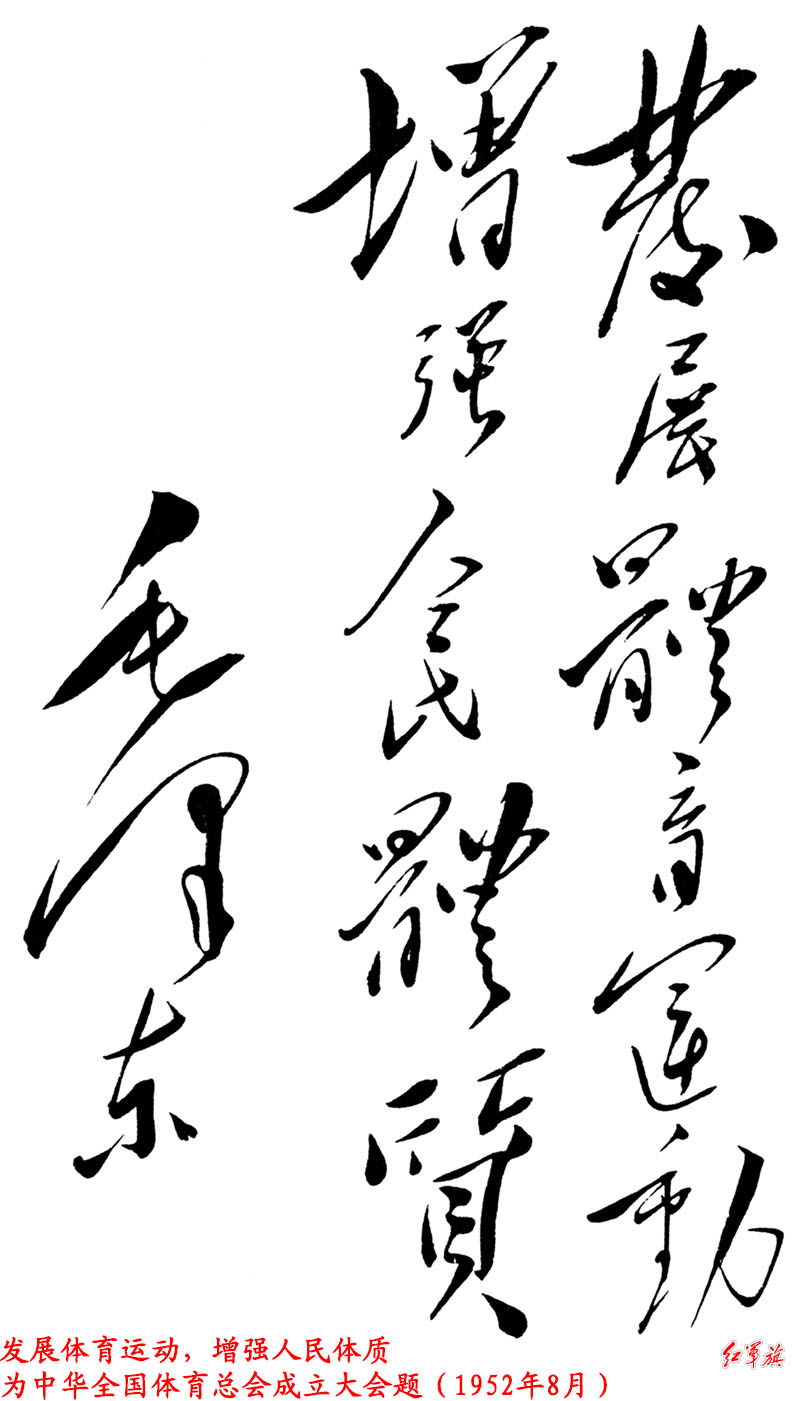 發展體育運動
增强人民體質
毛泽东
发展体育运动，增强人民体质
为中华全国体育总会成立大会题（1952年8月）
红军旗